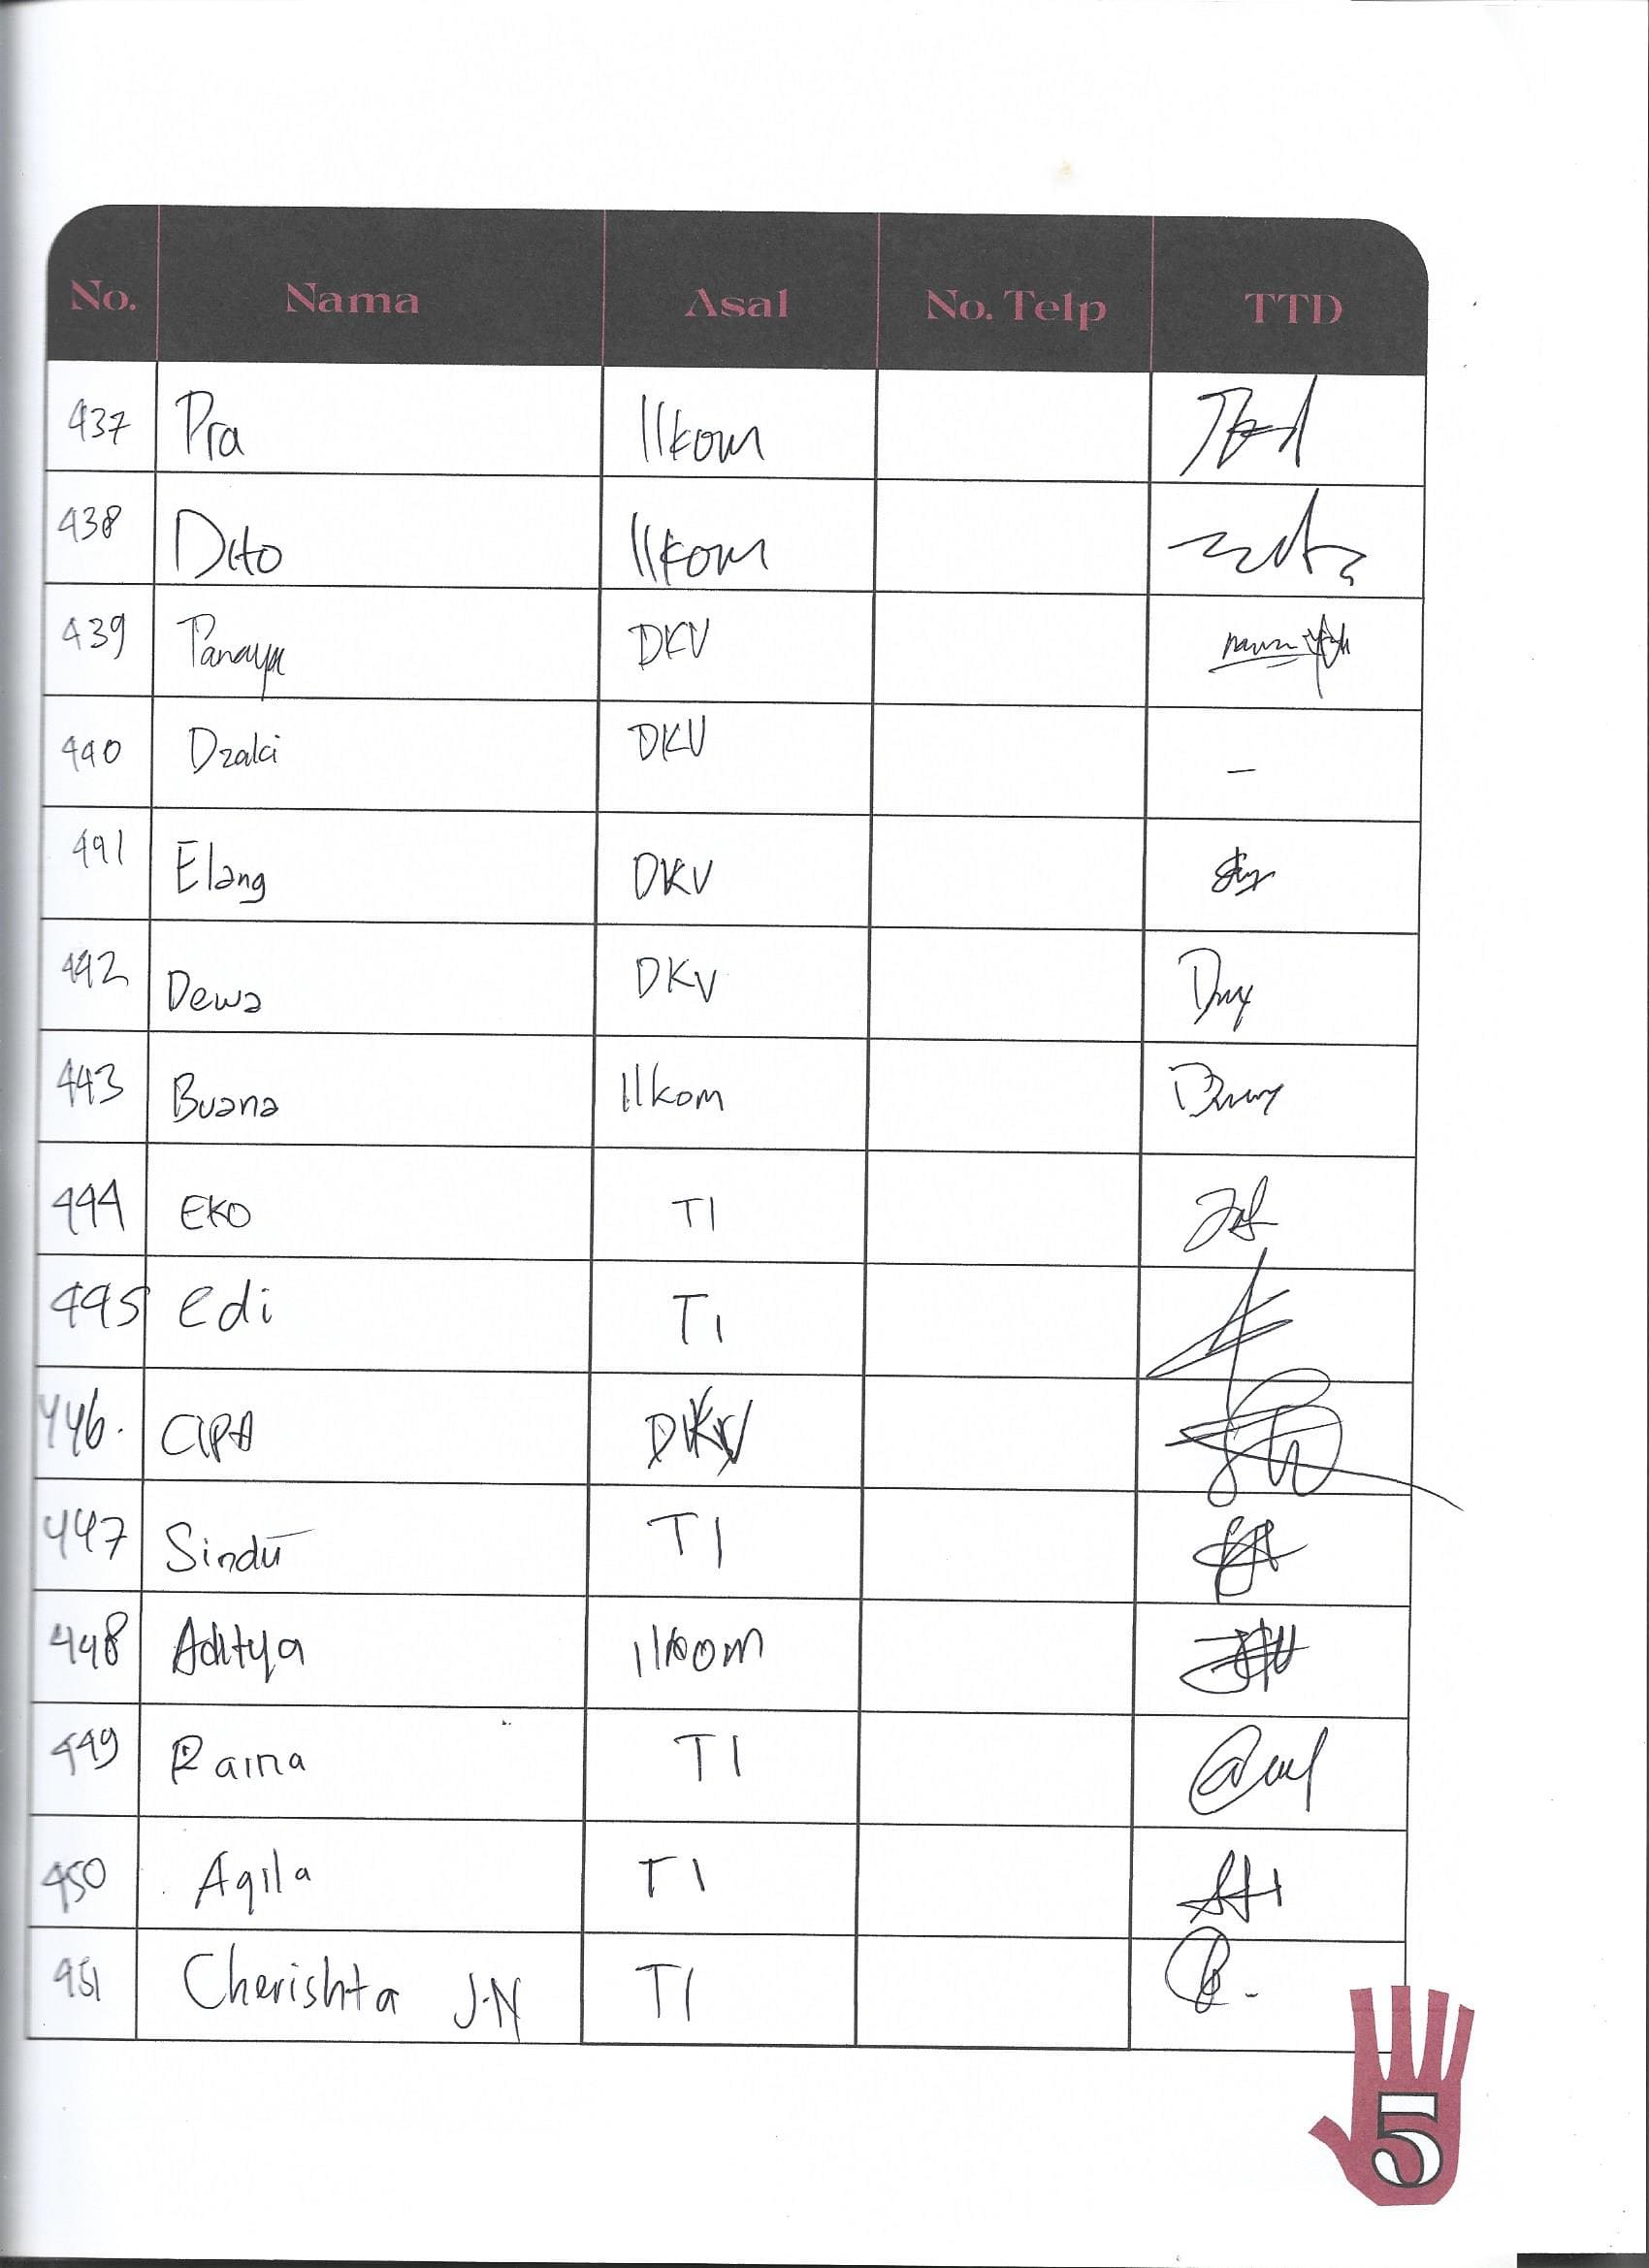 No. Nama Asal No. Telp TTD
437 Pra Ilkom
438 Dito Ilkom
439 Panaya DKV
440 Dzaki DKV -
441 Elang DKV
442 Dewa DKV
443 Buana Ilkom
444 EKO TI
445 edi TI
446. CIPA DKV
447 Sindu TI
448 Aditya Ilkom
449 Raina TI
450 Aqila TI
451 Cherishta J.N TI
5